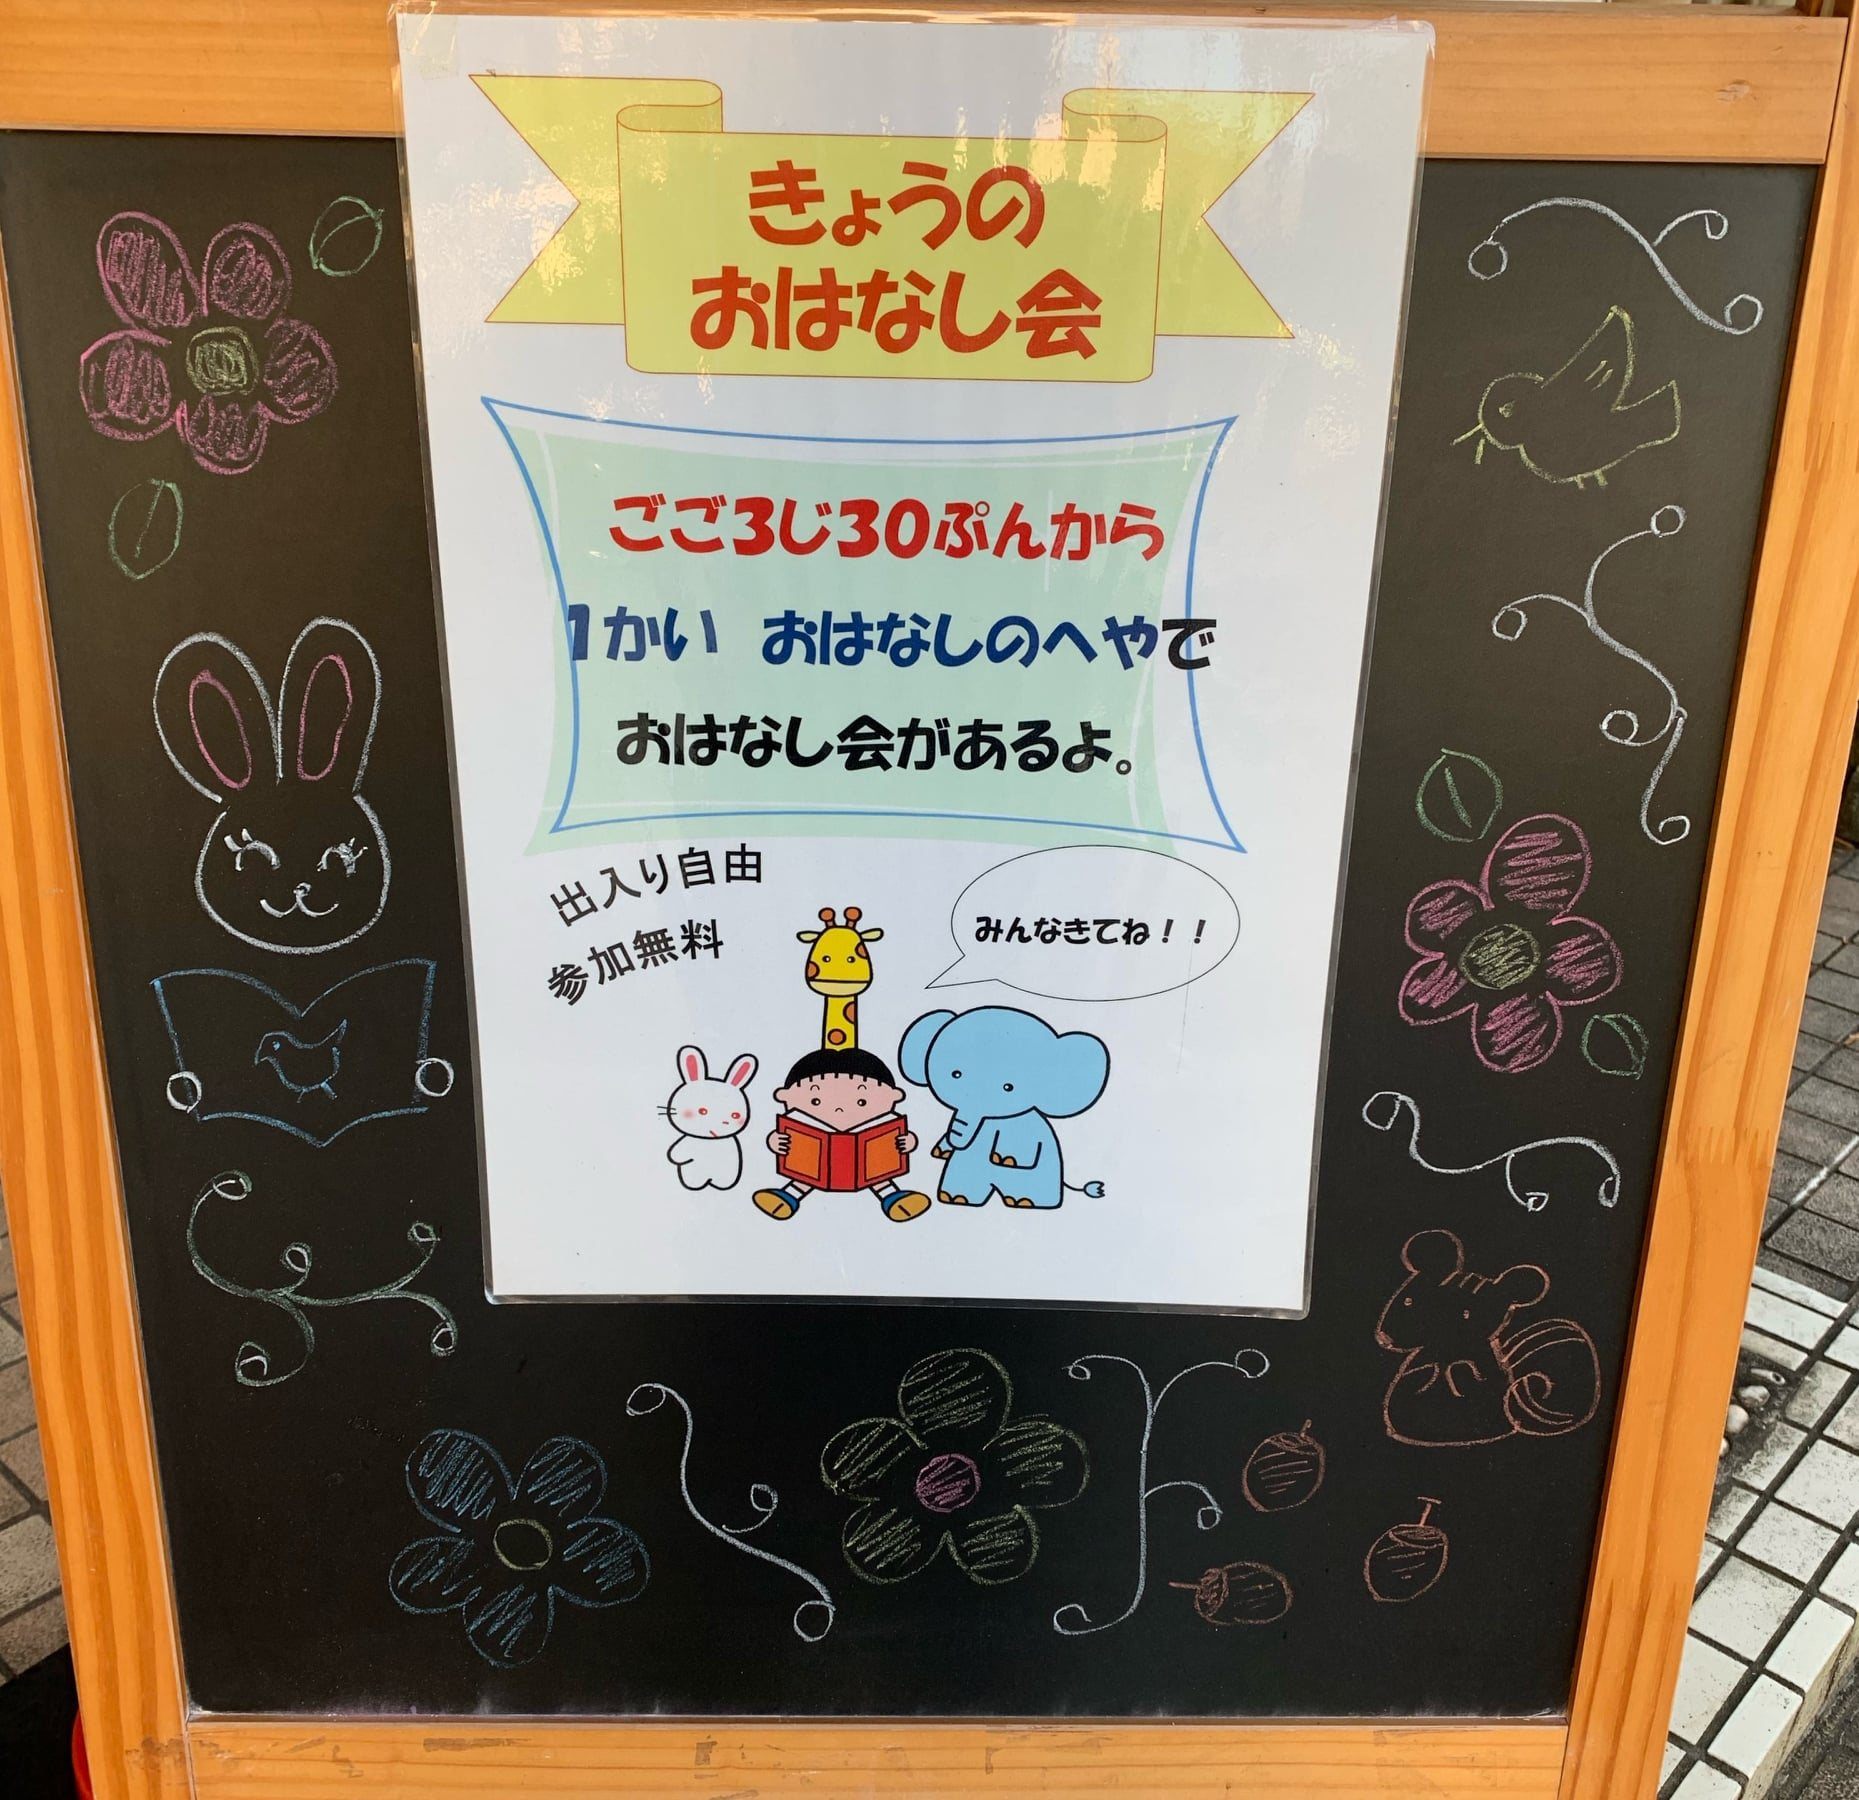 きょうの
おはなし会
ごご3じ30ぷんから
1かい　おはなしのへやで
おはなし会があるよ。
出入り自由
参加無料
みんなきてね！！